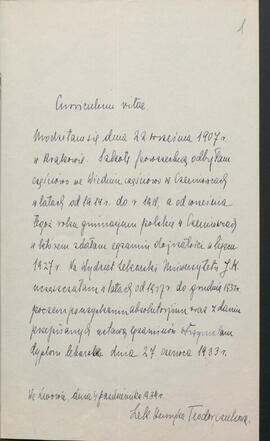 1
Curriculum vitae
Urodziłam się dnia 22 września 1907 r.
w Krakowie. Szkołę powszechną odbyłam
częściowo we Wiedniu częściowo w Czerniowcach
w latach od 1914 r. do r. 1918, a od września
tegoż roku gimnazjum polskie w Czerniowcach
w którem zdałam egzamin dojrzałości w lipcu
1927 r. Na Wydział Lekarski Uniwersytetu J. K.
uczęszczałam w latach od 1927 r. do grudnia
poczem po uzyskaniu absolutorjum oraz zdaniu
przepisanych ustawą egzaminów otrzymałam
dyplom lekarski dnia 27 czerwca 1933 r.
We Lwowie, dnia 4 października 1934 r.
Lek. Henryka Teodorczukowa